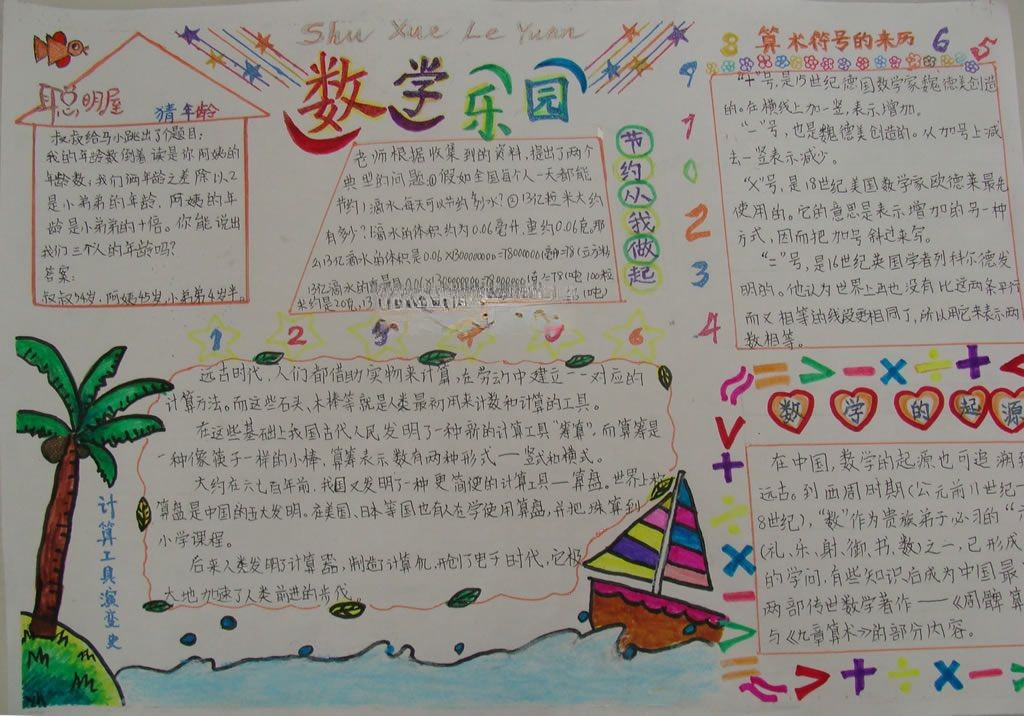 Shu Xue Le Yuan
数学乐园
聪明屋
猜年龄
叔叔给马小跳出了个题目:
我的年龄数倒着读是你阿姨的
年龄数,我们俩年龄之差除以2
是小弟弟的年龄,阿姨的年
龄是小弟弟的十倍。你能说出
我们三个人的年龄吗?
答案:
叔叔54岁,阿姨45岁,小弟弟4岁半。
老师根据收集到的资料,提出了两个
典型的问题:①假如全国每个人一天都能
节约1滴水,每天可以节约多少水?②13亿粒米大约
有多少?1滴水的体积约为0.06毫升,重约0.06克,那
节约从我做起
8 算术符号的来历 6 5
9
7
0
2
3
4
“+”号,是15世纪德国数学家魏德美创造
的。在横线上加一竖,表示增加。
“-”号,也是魏德美创造的。从加号上减
去一竖表示减少。
“×”号,是18世纪美国数学家欧德莱最先
使用的。它的意思是表示增加的另一种
方式,因而把加号斜过来写。
“=”号,是16世纪英国学者列科尔德发
明的。他认为世界上再也没有比这两条平行
而又相等的线段更相同了,所以用它来表示两
数相等。
1 2 3 4 5 6
远古时代,人们都借助实物来计算,在劳动中建立一一对应的
计算方法。而这些石头、木棒等就是人类最初用来计数和计算的工具。
在这些基础上我国古代人民发明了一种新的计算工具“筹算”,而算筹是
一种像筷子一样的小棒,算筹表示数有两种形式——竖式和横式。
大约在六七百年前,我国又发明了一种更简便的计算工具——算盘。世界上
算盘是中国的五大发明。在美国、日本等国也有人在学使用算盘,并把珠算到
小学课程。
后来人类发明了计算器,制造了计算机,开创了电子时代,它极
大地加速了人类前进的步伐。
计算工具演变史
= > - × ÷ + <
数学的起源
在中国,数学的起源也可追溯到
远古。到西周时期(公元前11世纪—
8世纪),“数”作为贵族弟子必习的“六
(礼、乐、射、御、书、数)之一,已形成
的学问,有些知识后成为中国最
两部传世数学著作——《周髀算
与《九章算术》的部分内容。
> + ÷ × - >